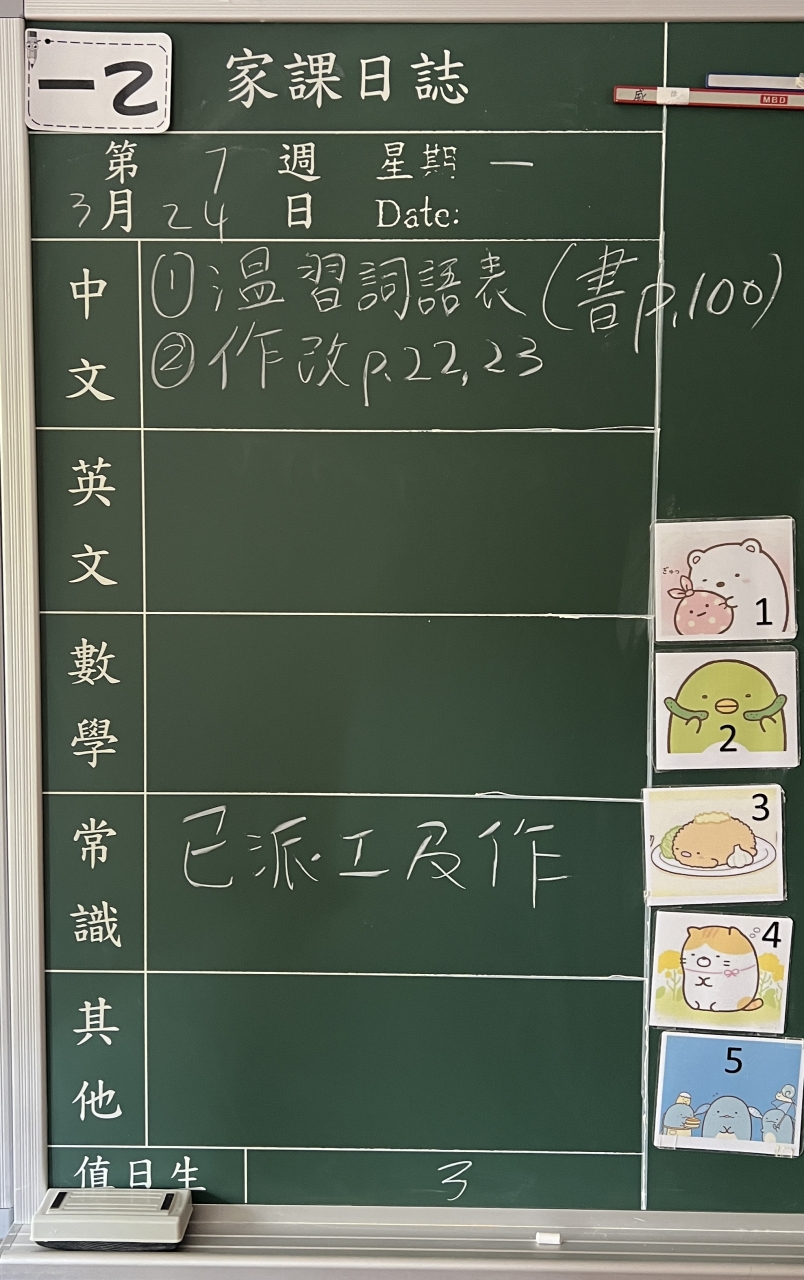 一乙
家課日誌
第 7 週 星期 一
3月 24 日 Date:
中文
①溫習詞語表(書p.100)
②作改p.22,23
英文
數學
常識
已派工及作
其他
值日生 3
MBD
ぎゅっ
1
2
3
4
5